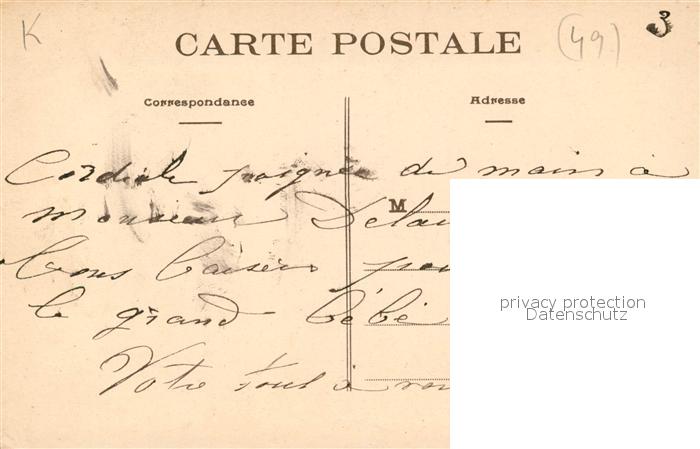 K
CARTE POSTALE
(49)
3
Correspondance
Adresse
Cordiale poignée de main à
M
monsieur Delau
Bons baisers pou
le grand bébé
Votre tout à vou
privacy protection
Datenschutz